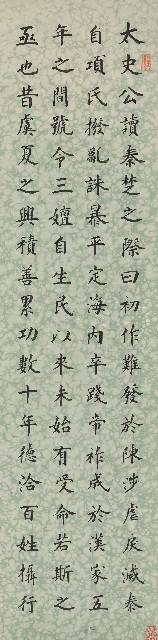 太史公讀秦楚之際曰初作難發於陳涉虐戾滅秦
自項氏撥亂誅暴平定海內卒踐帝祚成於漢家五
年之間號令三嬗自生民以來未始有受命若斯之
亟也昔虞夏之興積善累功數十年德洽百姓攝行